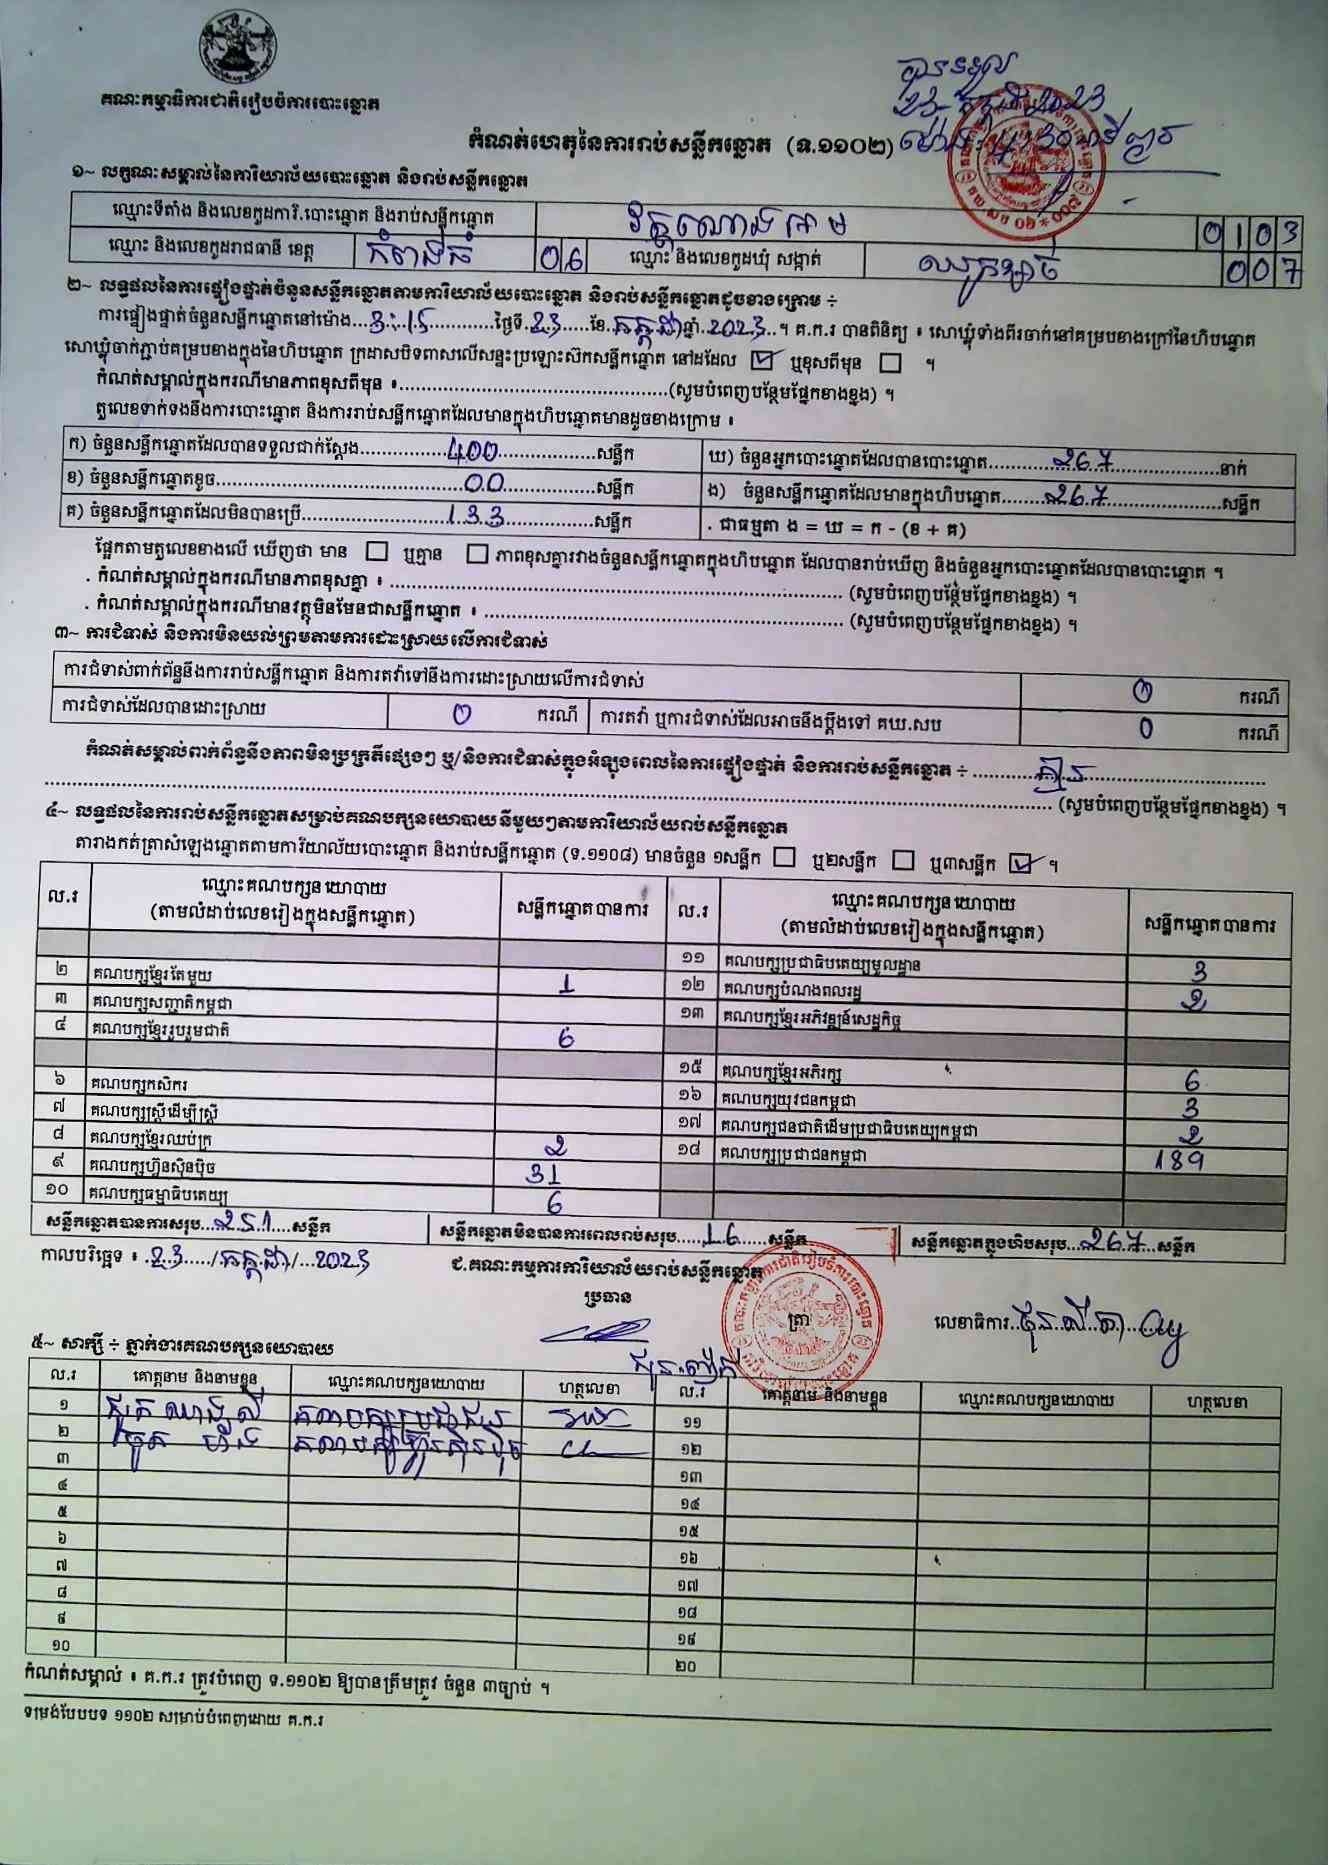 គណៈកម្មាធិការជាតិរៀបចំការបោះឆ្នោត
បានទទួល
23-កក្កដា-2023
កំណត់ហេតុនៃការរាប់សន្លឹកឆ្នោត (ទ.១១០២)
១~ លក្ខណៈសម្គាល់នៃការិយាល័យបោះឆ្នោត និងរាប់សន្លឹកឆ្នោត
ឈ្មោះទីតាំង និងលេខកូដការិ.បោះឆ្នោត និងរាប់សន្លឹកឆ្នោត 0103
ឈ្មោះ និងលេខកូដរាជធានី ខេត្ត កំពង់ធំ 06 ឈ្មោះ និងលេខកូដឃុំ សង្កាត់ 007
២~ លទ្ធផលនៃការផ្ទៀងផ្ទាត់ចំនួនសន្លឹកឆ្នោតតាមការិយាល័យបោះឆ្នោត និងរាប់សន្លឹកឆ្នោតដូចខាងក្រោម ÷
ការផ្ទៀងផ្ទាត់ចំនួនសន្លឹកឆ្នោតនៅម៉ោង...3:15...ថ្ងៃទី.23...ខែ.កក្កដា.ឆ្នាំ.2023..។ គ.ក.រ បានពិនិត្យ ៖ សោឃ្លុំទាំងពីរចាក់នៅគម្របខាងក្រៅនៃហិបឆ្នោត
សោឃ្លុំចាក់ភ្ជាប់គម្របខាងក្នុងនៃហិបឆ្នោត ក្រដាសបិទពាសលើសន្ទះប្រឡោះស៊កសន្លឹកឆ្នោត នៅដដែល ☑ ឬខុសពីមុន ☐ ។
កំណត់សម្គាល់ក្នុងករណីមានភាពខុសពីមុន ៖......(សូមបំពេញបន្ថែមផ្នែកខាងខ្នង) ។
តួលេខទាក់ទងនឹងការបោះឆ្នោត និងការរាប់សន្លឹកឆ្នោតដែលមានក្នុងហិបឆ្នោតមានដូចខាងក្រោម ៖
ក) ចំនួនសន្លឹកឆ្នោតដែលបានទទួលជាក់ស្ដែង......400......សន្លឹក ឃ) ចំនួនអ្នកបោះឆ្នោតដែលបានបោះឆ្នោត......267......នាក់
ខ) ចំនួនសន្លឹកឆ្នោតខូច......00......សន្លឹក ង) ចំនួនសន្លឹកឆ្នោតដែលមានក្នុងហិបឆ្នោត......267......សន្លឹក
គ) ចំនួនសន្លឹកឆ្នោតដែលមិនបានប្រើ......133......សន្លឹក . ជាធម្មតា ង = ឃ = ក - (ខ + គ)
ផ្អែកតាមតួលេខខាងលើ ឃើញថា មាន ☐ ឬគ្មាន ☐ ភាពខុសគ្នារវាងចំនួនសន្លឹកឆ្នោតក្នុងហិបឆ្នោត ដែលបានរាប់ឃើញ និងចំនួនអ្នកបោះឆ្នោតដែលបានបោះឆ្នោត ។
. កំណត់សម្គាល់ក្នុងករណីមានភាពខុសគ្នា ៖ ...... (សូមបំពេញបន្ថែមផ្នែកខាងខ្នង) ។
. កំណត់សម្គាល់ក្នុងករណីមានវត្ថុមិនមែនជាសន្លឹកឆ្នោត ៖ ...... (សូមបំពេញបន្ថែមផ្នែកខាងខ្នង) ។
៣~ ការជំទាស់ និងការមិនយល់ព្រមតាមការដោះស្រាយលើការជំទាស់
ការជំទាស់ពាក់ព័ន្ធនឹងការរាប់សន្លឹកឆ្នោត និងការតវ៉ាទៅនឹងការដោះស្រាយលើការជំទាស់ 0 ករណី
ការជំទាស់ដែលបានដោះស្រាយ 0 ករណី ការតវ៉ា ឬការជំទាស់ដែលអាចនឹងប្ដឹងទៅ គឃ.សប 0 ករណី
កំណត់សម្គាល់ពាក់ព័ន្ធនឹងភាពមិនប្រក្រតីផ្សេងៗ ឬ/និងការជំទាស់ក្នុងអំឡុងពេលនៃការផ្ទៀងផ្ទាត់ និងការរាប់សន្លឹកឆ្នោត ÷ ......គ្មាន......
...... (សូមបំពេញបន្ថែមផ្នែកខាងខ្នង) ។
៤~ លទ្ធផលនៃការរាប់សន្លឹកឆ្នោតសម្រាប់គណបក្សនយោបាយនីមួយៗតាមការិយាល័យរាប់សន្លឹកឆ្នោត
តារាងកត់ត្រាសំឡេងឆ្នោតតាមការិយាល័យបោះឆ្នោត និងរាប់សន្លឹកឆ្នោត (ទ.១១០៨) មានចំនួន ១សន្លឹក ☐ ឬ២សន្លឹក ☐ ឬ៣សន្លឹក ☑ ។
ល.រ ឈ្មោះគណបក្សនយោបាយ (តាមលំដាប់លេខរៀងក្នុងសន្លឹកឆ្នោត) សន្លឹកឆ្នោតបានការ ល.រ ឈ្មោះគណបក្សនយោបាយ (តាមលំដាប់លេខរៀងក្នុងសន្លឹកឆ្នោត) សន្លឹកឆ្នោតបានការ
១១ គណបក្សប្រជាធិបតេយ្យមូលដ្ឋាន 3
២ គណបក្សខ្មែរតែមួយ 1 ១២ គណបក្សបំណងពលរដ្ឋ 2
៣ គណបក្សសញ្ជាតិកម្ពុជា ១៣ គណបក្សខ្មែរអភិវឌ្ឍន៍សេដ្ឋកិច្ច
៤ គណបក្សខ្មែររួបរួមជាតិ 6
១៥ គណបក្សខ្មែរអភិរក្ស 6
៦ គណបក្សកសិករ ១៦ គណបក្សយុវជនកម្ពុជា 3
៧ គណបក្សស្ត្រីដើម្បីស្ត្រី ១៧ គណបក្សជនជាតិដើមប្រជាធិបតេយ្យកម្ពុជា 2
៨ គណបក្សខ្មែរឈប់ក្រ 2 ១៨ គណបក្សប្រជាជនកម្ពុជា 189
៩ គណបក្សហ្វ៊ុនស៊ិនប៉ិច 31
១០ គណបក្សធម្មាធិបតេយ្យ 6
សន្លឹកឆ្នោតបានការសរុប...251...សន្លឹក សន្លឹកឆ្នោតមិនបានការពេលរាប់សរុប...16...សន្លឹក សន្លឹកឆ្នោតក្នុងហិបសរុប...267...សន្លឹក
កាលបរិច្ឆេទ ៖ .23.../.កក្កដា./..2023 ជ.គណៈកម្មការការិយាល័យរាប់សន្លឹកឆ្នោត
ប្រធាន ត្រា លេខាធិការ
៥~ សាក្សី ÷ ភ្នាក់ងារគណបក្សនយោបាយ
ល.រ គោត្តនាម និងនាមខ្លួន ឈ្មោះគណបក្សនយោបាយ ហត្ថលេខា ល.រ គោត្តនាម និងនាមខ្លួន ឈ្មោះគណបក្សនយោបាយ ហត្ថលេខា
១ គណបក្សប្រជាជន ១១
២ គណបក្សហ្វ៊ុនស៊ិនប៉ិច ១២
៣ ១៣
៤ ១៤
៥ ១៥
៦ ១៦
៧ ១៧
៨ ១៨
៩ ១៩
១០ ២០
កំណត់សម្គាល់ ៖ គ.ក.រ ត្រូវបំពេញ ទ.១១០២ ឱ្យបានត្រឹមត្រូវ ចំនួន ៣ច្បាប់ ។
ទម្រង់បែបបទ ១១០២ សម្រាប់បំពេញដោយ គ.ក.រ